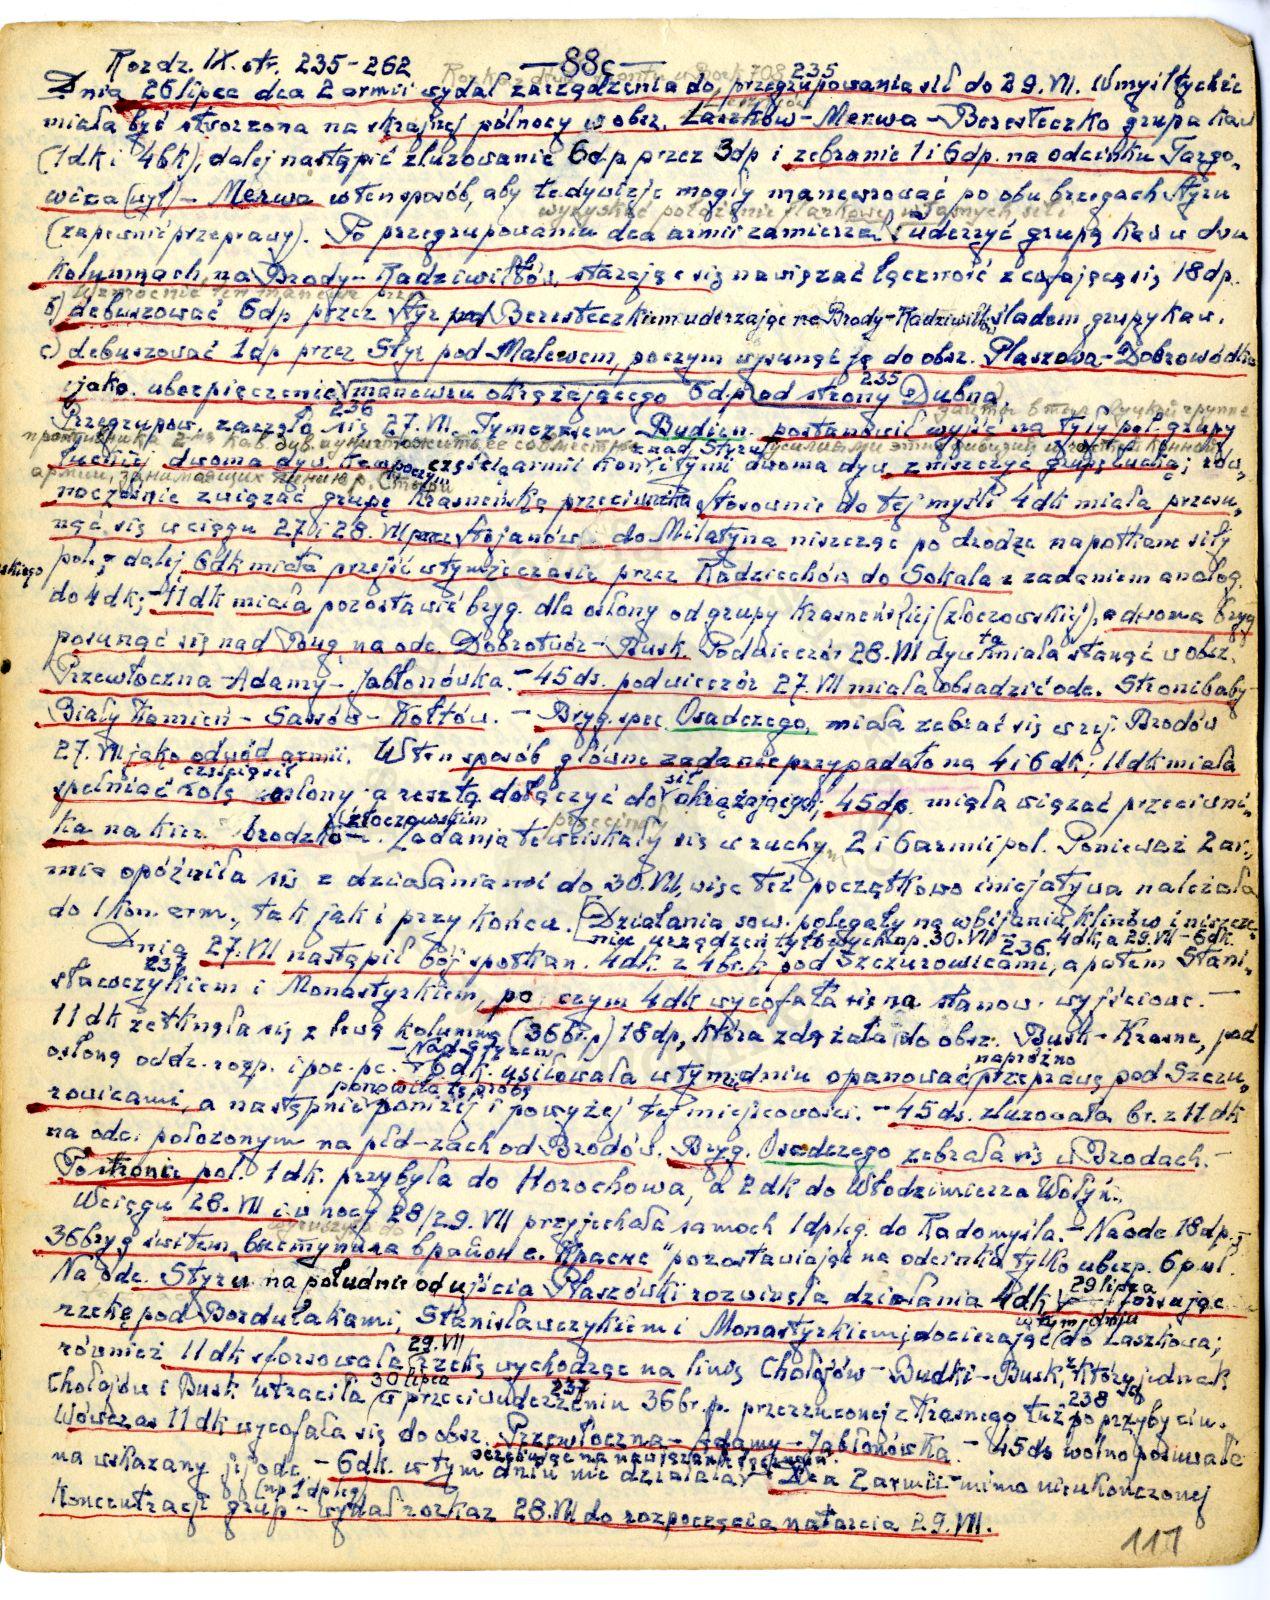 Rozdz. IX. str. 235-262
— 88c —
235
Dnia 26 lipca dca 2 armii wydał zarządzenia do przegrupowania sił do 29.VII. W myśl tychże
miała być stworzona na skrajnej północy w obsz. Łaszków – Merwa – Beresteczko grupa kaw
(1 dk i 4 bk); dalej nastąpić zluzowanie 6 dp przez 3 dp i zebranie 1 i 6 dp. na odcinku Targo-
wica (wył) – Merwa w ten sposób, aby te dywizje mogły manewrować po obu brzegach Styru
wykyskać położenie flankowe własnych sił i
(zapewnić przeprawy). Po przegrupowaniu dca armii zamierzał uderzyć grupą kaw w dwu
kolumnach na Brody – Radziwiłłów, starając się nawiązać łączność z cofającą się 18 dp.
b) debuszować 6 dp przez Styr pod Beresteczkiem uderzając na Brody – Radziwiłłów śladem grupy kaw.
c) debuszować 1 dp przez Styr pod Malewem, poczym wysunąć ją do obsz. Płaszowa – Dobrowódka
jako ubezpieczenie manewru okrążającego 6 dp od strony Dubna.
235
236
Przegrupow. zaczęło się 27.VII. Tymczasem Budien. postanowił wyjść na tyły pol. grupy
łuckiej dwoma dyw. kaw poczym częścią armii kon. i tymi dwoma dyw zniszczyć grupę łucką; rów-
nad Styru
nocześnie związać grupę Krasneńską przeciwnika. Stosownie do tej myśli 4 dk miała przesu-
nąć się w ciągu 27 i 28.VII przez Stojanów do Milatyna niszcząc po drodze napotkane siły
pol. i dalej 6 dk miała przejść w tymże czasie przez Radziechów do Sokala z zadaniem analog.
do 4 dk; – 11 dk miała pozostawić bryg. dla osłony od grupy Krasneńskiej (złoczowskiej), a dwoma bryg
posunąć się nad Bug na odc. Dobrotwór – Busk. Pod wieczór 28.VII dyw. ta miała stanąć w obsz.
Przewłoczna – Adamy – Jabłonówka. – 45 ds. pod wieczór 27.VII miała obsadzić odc. Stronibaby-
Biały Kamień – Sassów – Kołtów. – Bryg. spec. Osadczego, miała zebrać się w rej. Brodów
27.VII jako odwód armii. W ten sposób główne zadanie przypadało na 4 i 6 dk; 11 dk miała
częścią sił
spełniać rolę osłony a resztą dołączyć do sił okrążających; 45 ds. miała wiązać przeciwni-
ka na kier. brodzko – złoczowskim. Zadania te wciskały się w ruchy 2 i 6 armii pol. Ponieważ 2 ar-
mia opóźniła się z działaniami do 30.VII, więc też początkowo inicjatywa należała
do 1 kon. arm., tak jak i przy końcu. [Działania sow. polegały na wbijaniu klinów i niszcze-
niu urządzeń tyłowych np. 30.VII – 4 dk, a 29.VII – 6 dk.
236
Dnia 27.VII nastąpił bój spotkan. 4 dk. z 4 br. k pod Szczurowicami, a potem Stani-
237
sławczykiem i Monastyrkiem, po czym 4 dk wycofała się na stanow. wyjściowe. –
11 dk zetknęła się z lewą kolumną (36 br. p) 18 dp, która zdążała do obsz. Busk – Krasne, pod
osłoną oddz. rozp. i poc. pc. – Nad Styrem 6 dk. usiłowała w tym dniu opanować napróżno przeprawę pod Szczu-
rowicami, a następnie ponowiła tę próbę poniżej i powyżej tej miejscowości. – 45 ds. zluzowała br. z 11 dk
na odc. położonym na płd-zach od Brodów. Bryg. Osadczego zebrała się w Brodach. –
Po stronie pol. 1 dk. przybyła do Horochowa, a 2 dk do Włodzimierza Wołyń.
W ciągu 28.VII i w nocy 28/29.VII przyjechała samoch 1 dp leg. do Radomyśla. – Na odc 18 dp. –
36 bryg świtem „выступила в район с. Красне" pozostawiając na odcinku tylko ubezp. 6 p. uł.
Na odc. Styru na południe od ujścia Płaszówki rozwinęła działania 4 dk 29 lipca forsując
rzekę pod Bordulakami, Stanisławczykiem i Monastyrkiem, docierając w tym dniu do Łaszkowa;
również 11 dk sforsowała 29.VII rzekę wychodząc na linię Chołojów – Budki – Busk, z której jednak
Chołojów i Busk utraciła 30 lipca w przeciwuderzeniu 36 br. p. przerzuconej z Krasnego tuż po przybyciu.
237
238
Wówczas 11 dk wycofała się do obsz. Przewłoczna – Adamy – Jabłonówka. – 45 ds wolno posuwała się
na wskazany jej odc. – 6 dk. w tym dniu nie działała oczekując na nawiązanie łączności. – Dca 2 armii – mimo nieukończonej
koncentracji grup (np 1 dp leg) – wydał rozkaz 28.VII do rozpoczęcia natarcia 29.VII.
117